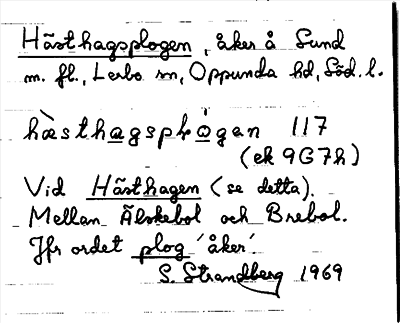 Hästhagsplogen, åker å Sund
m. fl., Lerbo sn, Oppunda hd, Söd. l.
hæ̀sthagsplògan 117
(ek 9G7h)
Vid Hästhagen (se detta).
Mellan Älskebol och Brebol.
Jfr ordet plog 'åker'.
S. Strandberg 1969